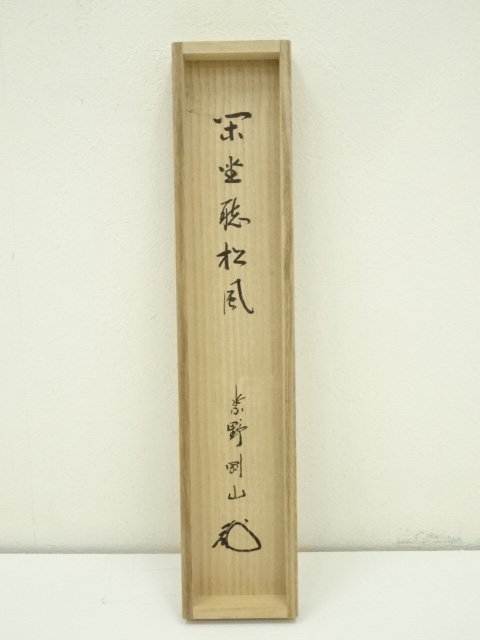 閑坐聴松風
紫野剛山